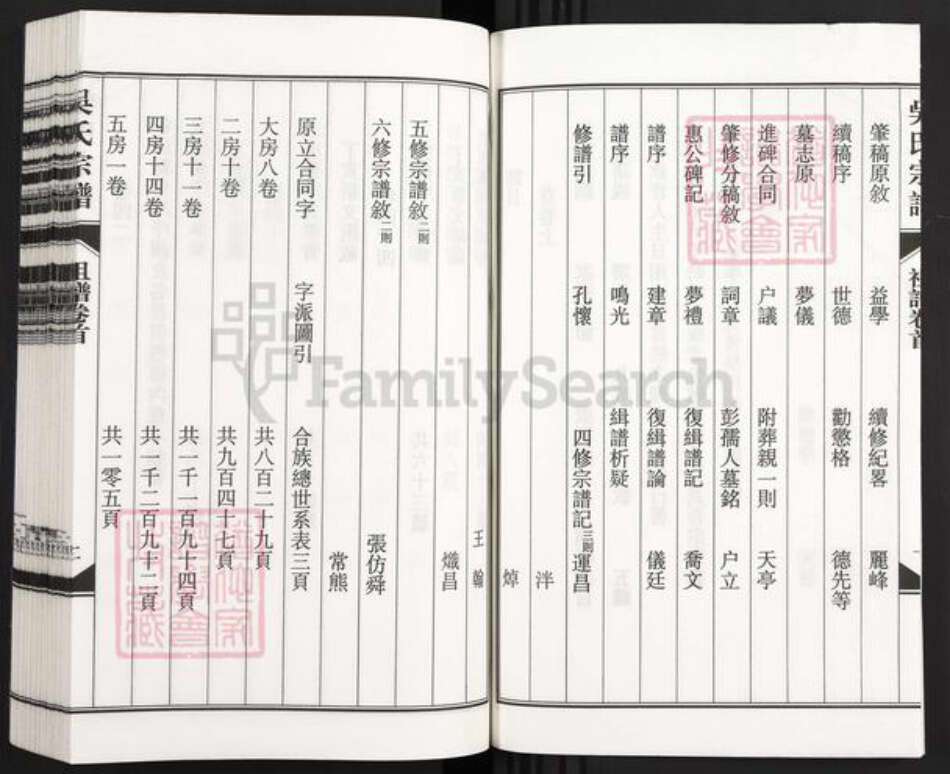 吳氏宗譜
肇稿原敘 益學 續修紀畧 麗峰
續稿序 世德 勸懲格 德先等
墓志原 夢儀
進碑合同 户議 附葬親一則 天亭
肇修分稿敘 詞章 彭孺人墓銘 户立
惠公碑記 夢禮 復緝譜記 喬文
譜序 建章 復緝譜論 儀廷
譜序 鳴光 緝譜析疑
修譜引 孔懷 四修宗譜記三則 運昌
泮
焯
王翰
熾昌
五修宗譜敘二則
六修宗譜敘二則 張仿舜
常熊
原立合同字 字派圖引 合族總世系表三頁
大房八卷 共八百二十九頁
二房十卷 共九百四十七頁
三房十一卷 共一千一百九十四頁
四房十四卷 共一千二百九十二頁
五房一卷 共一零五頁
吳氏宗譜
祖譜卷首
FamilySearch